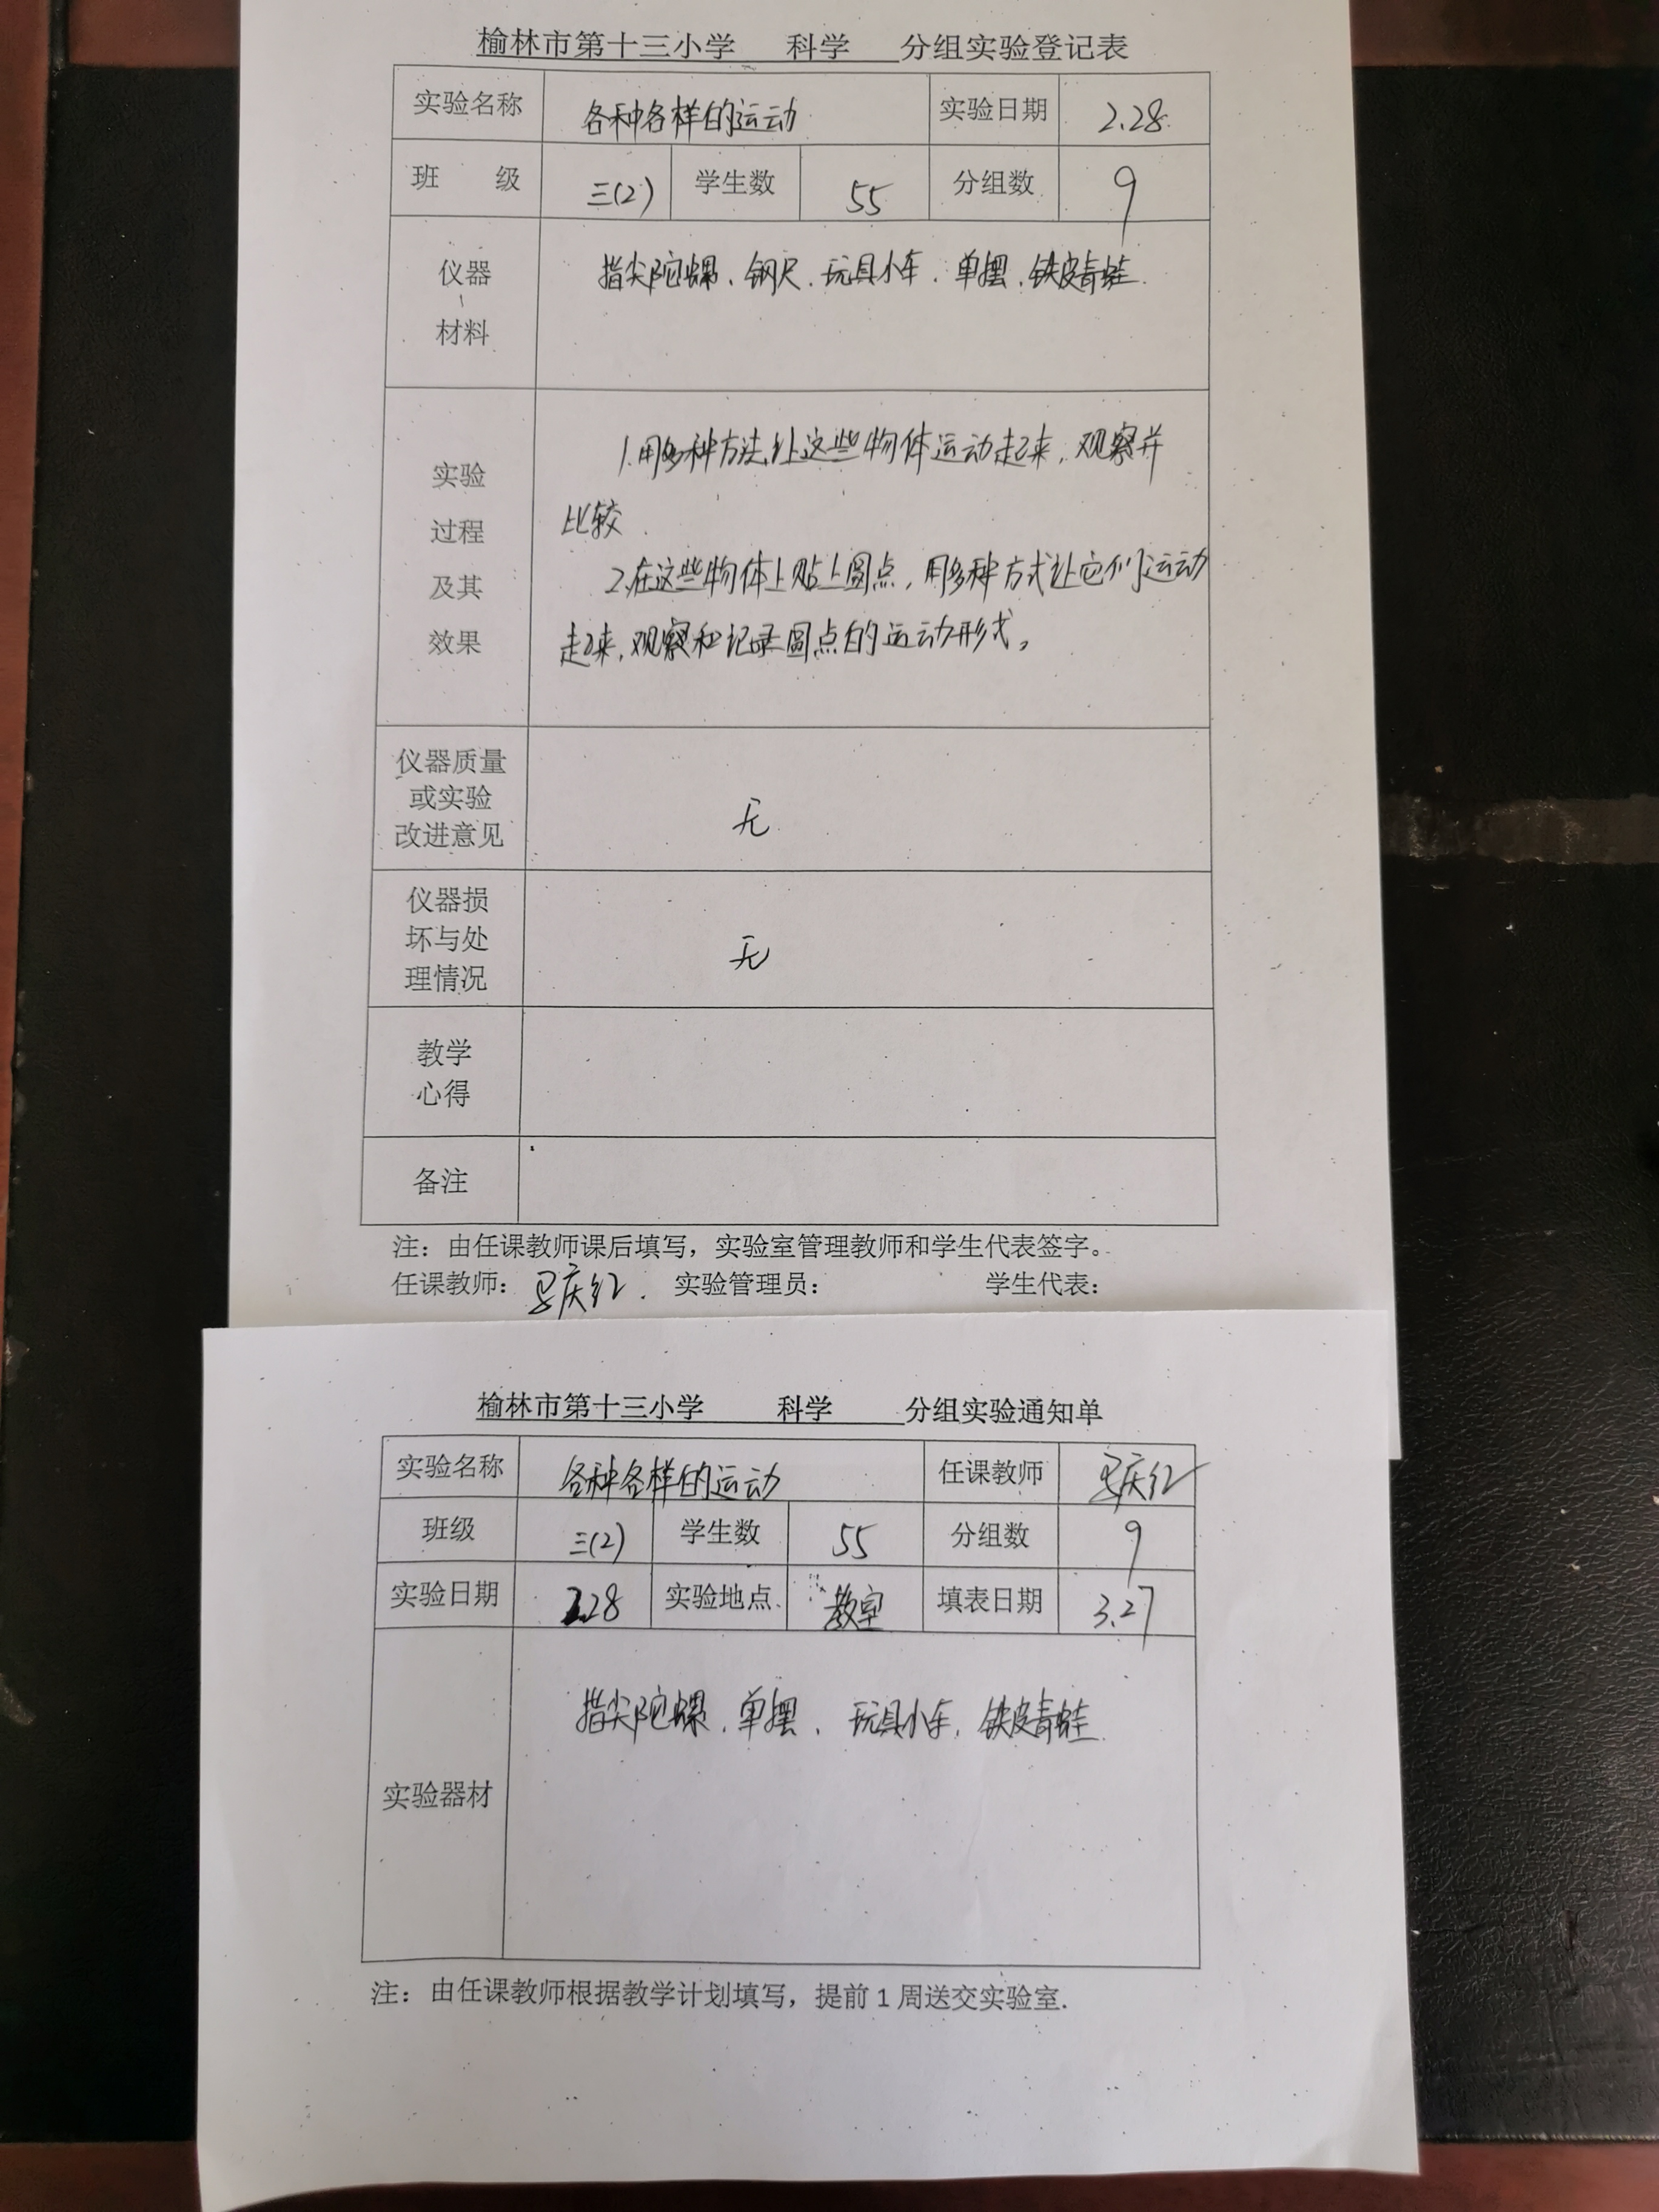 榆林市第十三小学 科学 分组实验登记表
实验名称 各种各样的运动 实验日期 2.28.
班 级 三(2) 学生数 55 分组数 9
仪器 指尖陀螺、钢尺、玩具小车、单摆、铁皮青蛙.
材料
1.用多种方法,让这些物体运动起来,观察并
实验
比较.
过程
2.在这些物体上贴上圆点,用多种方式让它们运动
及其
起来,观察和记录圆点的运动形式。
效果
仪器质量
或实验 无
改进意见
仪器损
坏与处 无
理情况
教学
心得
备注
注:由任课教师课后填写,实验室管理教师和学生代表签字。
任课教师: 庆红. 实验管理员: 学生代表:
榆林市第十三小学 科学 分组实验通知单
实验名称 各种各样的运动 任课教师 庆红
班级 三(2) 学生数 55 分组数 9
实验日期 2.28 实验地点 教室 填表日期 3.27
指尖陀螺、单摆、玩具小车,铁皮青蛙.
实验器材
注:由任课教师根据教学计划填写,提前1周送交实验室.